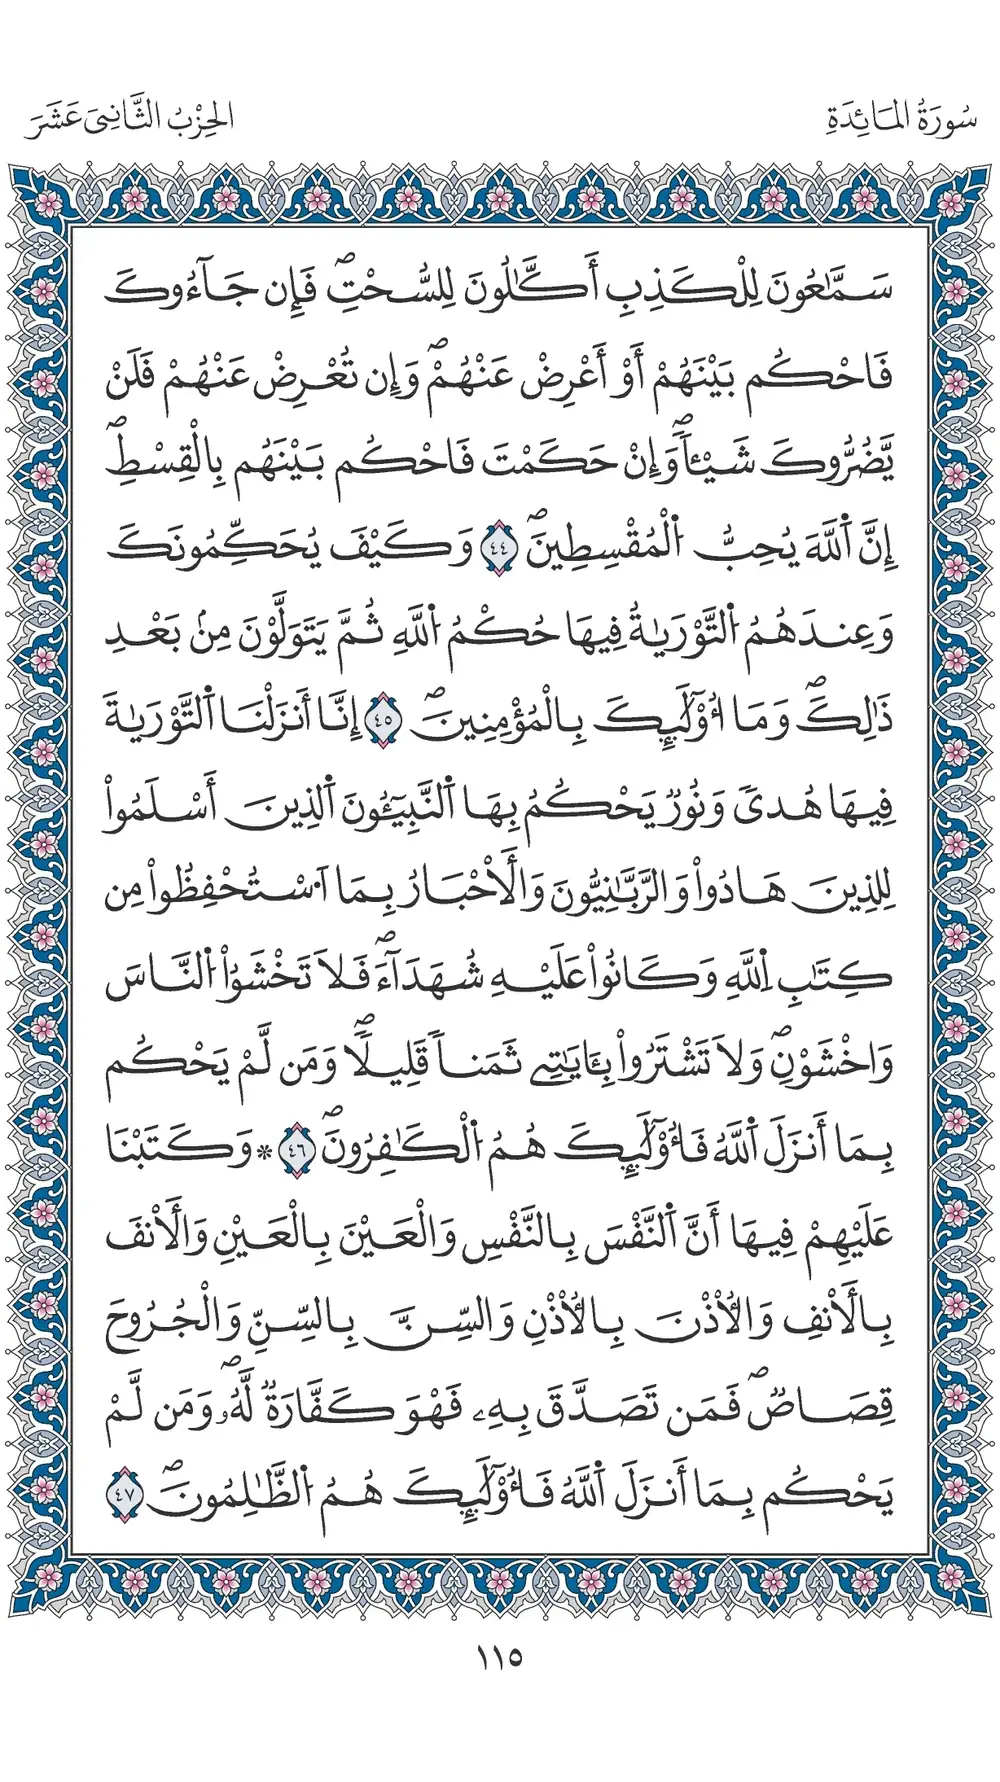 سُورَةُ المَائِدَةِ
الحِزْبُ الثَّانِيَ عَشَرَ
سَمَّٰعُونَ لِلْكَذِبِ أَكَّٰلُونَ لِلسُّحْتِۖ فَإِن جَآءُوكَ
فَاحْكُم بَيْنَهُمْ أَوْ أَعْرِضْ عَنْهُمْۖ وَإِن تُعْرِضْ عَنْهُمْ فَلَنْ
يَّضُرُّوكَ شَيْـٔاٗۖ وَإِنْ حَكَمْتَ فَاحْكُم بَيْنَهُم بِالْقِسْطِۖ
إِنَّ اَ۬للَّهَ يُحِبُّ اُ۬لْمُقْسِطِينَۖ ٤٤ وَكَيْفَ يُحَكِّمُونَكَ
وَعِندَهُمُ اُ۬لتَّوْرَيٰةُ فِيهَا حُكْمُ اُ۬للَّهِ ثُمَّ يَتَوَلَّوْنَ مِنۢ بَعْدِ
ذَٰلِكَۖ وَمَا أُوْلَٰٓئِكَ بِالْمُؤْمِنِينَۖ ٤٥ إِنَّا أَنزَلْنَا اَ۬لتَّوْرَيٰةَ
فِيهَا هُدىٗ وَنُورٞ يَحْكُمُ بِهَا اَ۬لنَّبِيٓـُٔونَ اَ۬لذِينَ أَسْلَمُواْ
لِلذِينَ هَادُواْ وَالرَّبَّٰنِيُّونَ وَالْأَحْبَارُ بِمَا اَ۟سْتُحْفِظُواْ مِن
كِتَٰبِ اِ۬للَّهِ وَكَانُواْ عَلَيْهِ شُهَدَآءَۖ فَلَا تَخْشَوُاْ اُ۬لنَّاسَ
وَاخْشَوْنِۖ وَلَا تَشْتَرُواْ بِـَٔايَٰتِے ثَمَناٗ قَلِيلاٗۖ وَمَن لَّمْ يَحْكُم
بِمَا أَنزَلَ اَ۬للَّهُ فَأُوْلَٰٓئِكَ هُمُ اُ۬لْكَٰفِرُونَۖ ٤٦ * وَكَتَبْنَا
عَلَيْهِمْ فِيهَا أَنَّ اَ۬لنَّفْسَ بِالنَّفْسِ وَالْعَيْنَ بِالْعَيْنِ وَالْأَنفَ
بِالْأَنفِ وَالْأُذْنَ بِالْأُذْنِ وَالسِّنَّ بِالسِّنِّ وَالْجُرُوحَ
قِصَاصٞۖ فَمَن تَصَدَّقَ بِهِۦ فَهْوَ كَفَّارَةٞ لَّهُۥۖ وَمَن لَّمْ
يَحْكُم بِمَا أَنزَلَ اَ۬للَّهُ فَأُوْلَٰٓئِكَ هُمُ اُ۬لظَّٰلِمُونَۖ ٤٧
١١٥